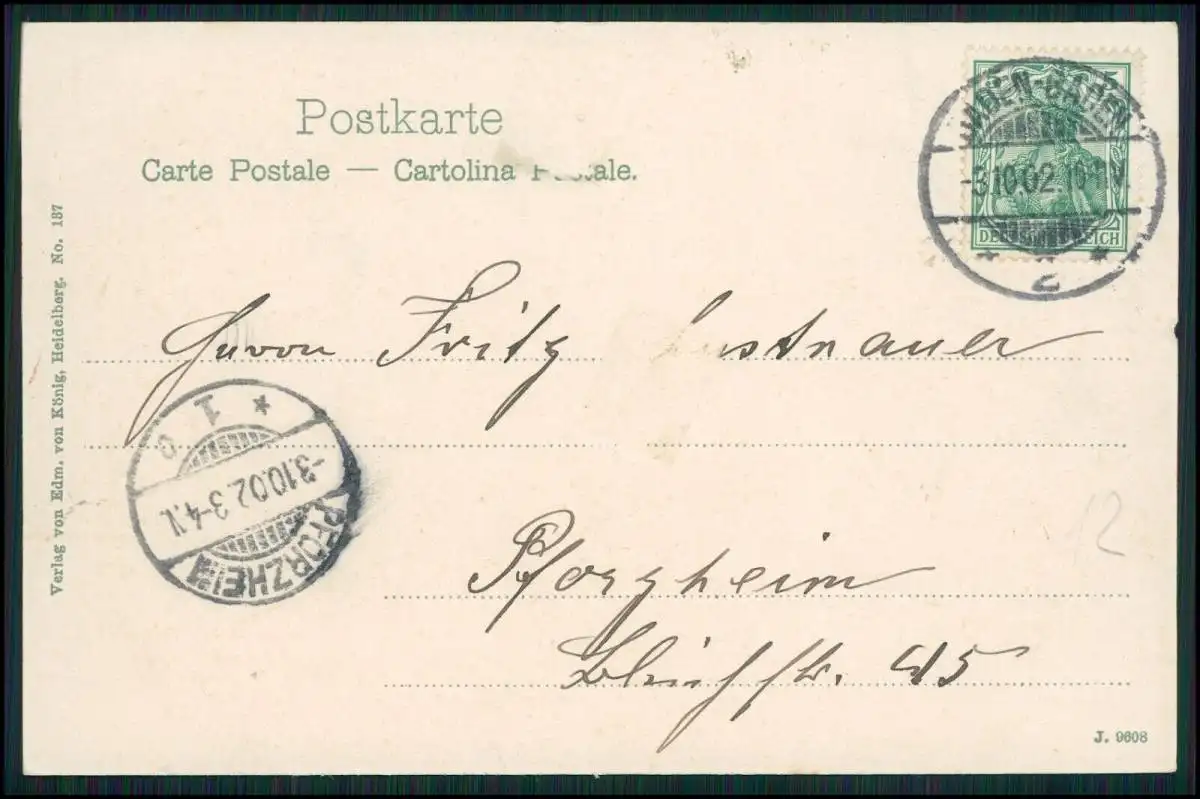 Postkarte
Carte Postale — Cartolina
BADEN-BADEN
-3.10.02.10-
2
5
DEUTSCHES REICH
Verlag von Edm. von König, Heidelberg. No. 137
Herrn Fritz
* 1
-3.10.02.3-4.V.
PFORZHEIM
Pforzheim
45
12
J. 9608